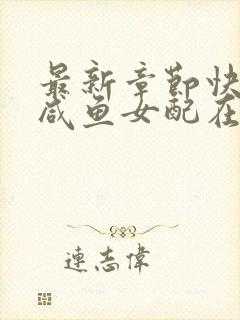 最新章節快
咸鱼女配在
連志偉